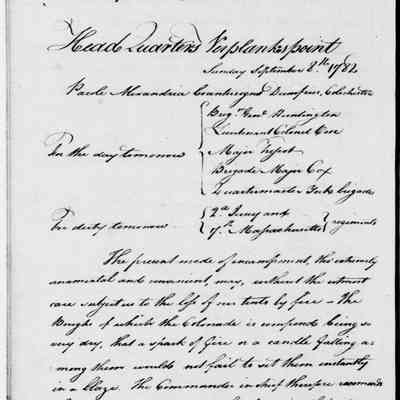 Head Quarters Verplanks point
Sunday September 8.th 1782
Parole Alexandria Countersigns Dumfries, Colchester
Brig.r Gen.l Huntington
Lieutenant Colonel
For the day tomorrow
Major
Brigade Major Cox
Quartermaster brigade
For duty tomorrow
2.d Jersey and
7.th Massachusetts regiments
The present mode of encampment, tho' extremely
ornamental and convenient, may, without the utmost
care subject us to the loss of our tents by fire – the
Boughs of which the Colonade is composed being so
very dry, that a spark of fire or a candle falling a-
mong them would not fail to set them instantly
in a blaze. The Commander in chief therefore recommen